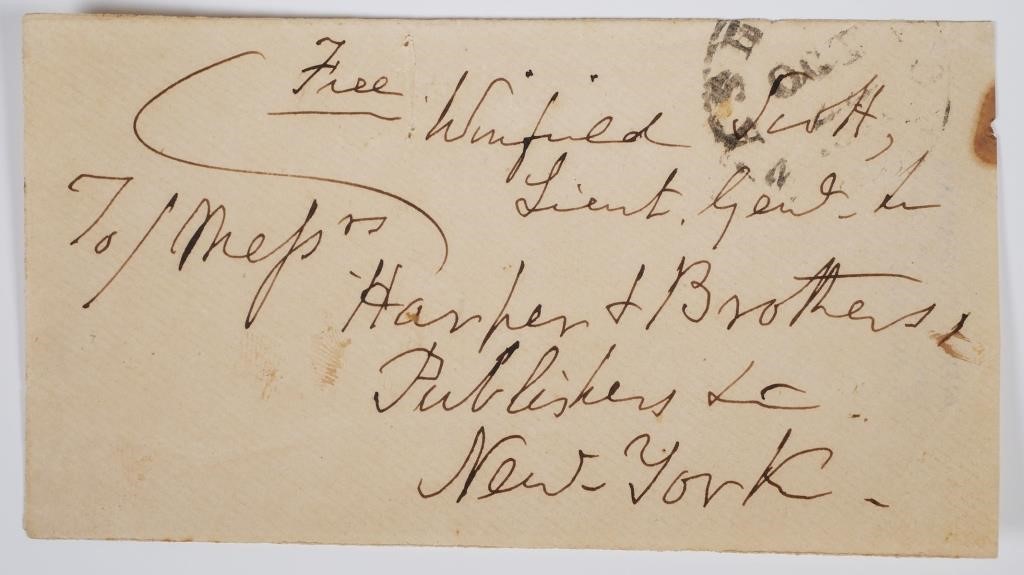 Free
Winfield Scott,
Lieut. Genl. &c
To/ Messrs
Harper & Brothers,
Publishers &c.
New-York.
OCT